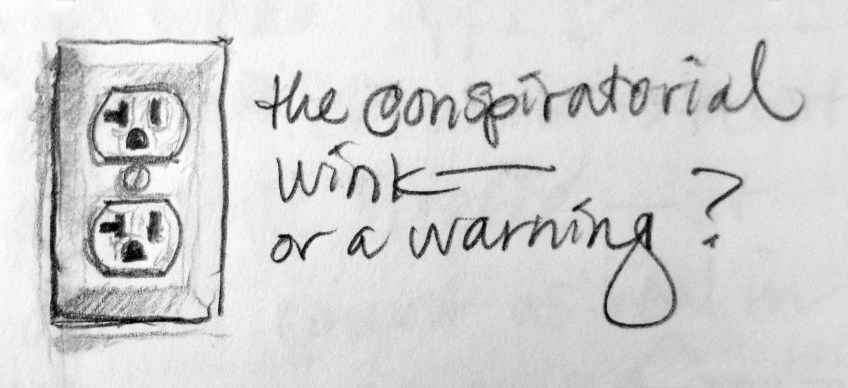 the conspiratorial
wink—
or a warning?